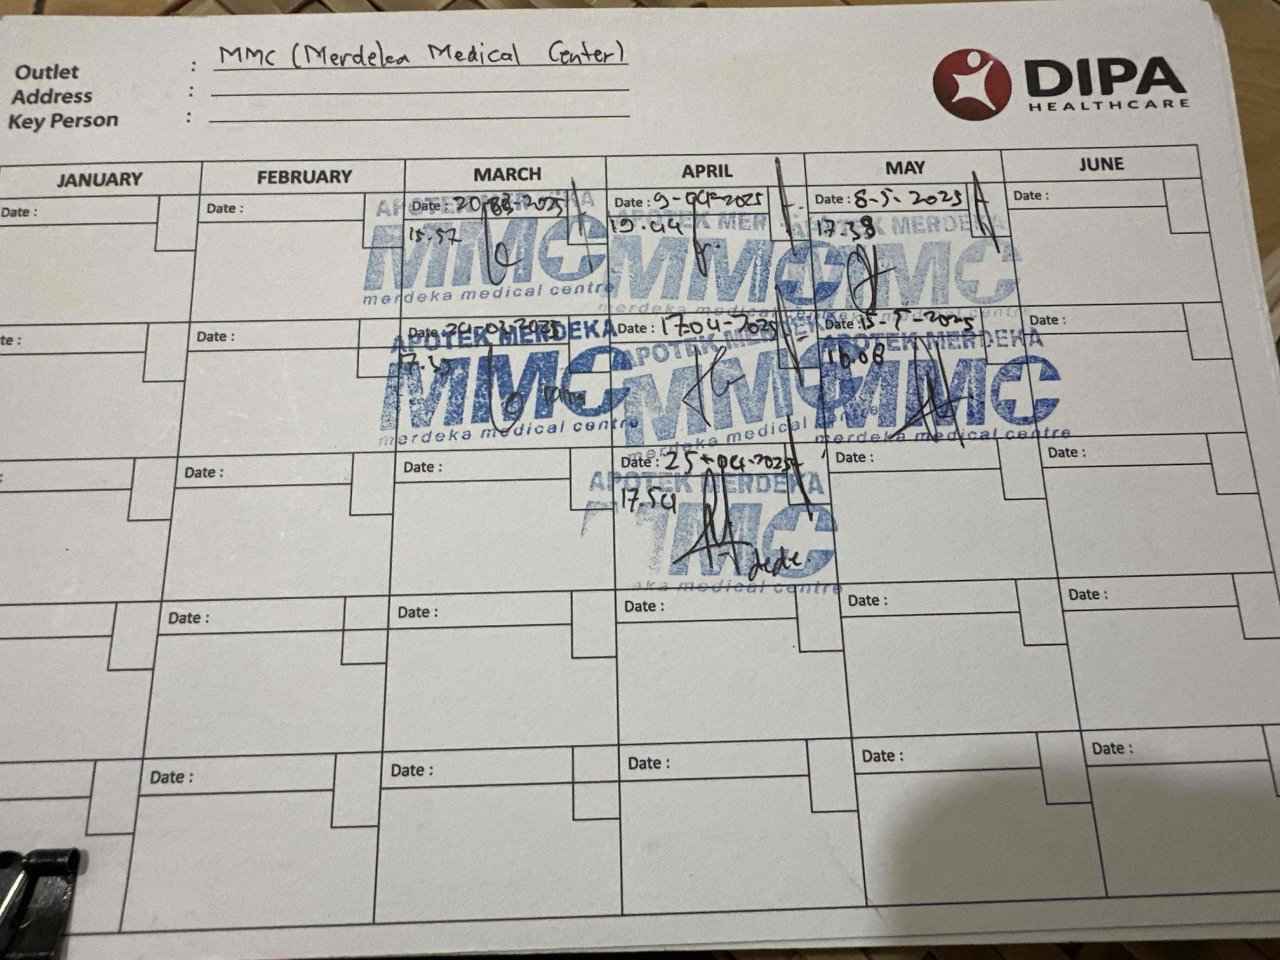 Outlet : MMC (Merdeka Medical Center)
Address :
Key Person :
DIPA
HEALTHCARE
JANUARY FEBRUARY MARCH APRIL MAY JUNE
Date : Date : Date : 20-03-2025 Date : 9-04-2025 Date : 8-5-2025 Date :
15.57 19.44 17.38
APOTEK MERDEKA APOTEK MER APOTEK MERDEKA
MMC MMC MMC
merdeka medical centre
te : Date : Date : 24-03-2025 Date : 17-04-2025 Date : 15-5-2025 Date :
17.35 16.08
APOTEK MERDEKA APOTEK MERDEKA APOTEK MERDEKA
MMC MMC MMC
merdeka medical centre merdeka medical centre merdeka medical centre
: Date : Date : Date : 25-04-2025 Date : Date :
17.54
APOTEK MERDEKA
MMC
dede.
aka medical centre
Date : Date : Date : Date : Date :
Date : Date : Date : Date : Date :